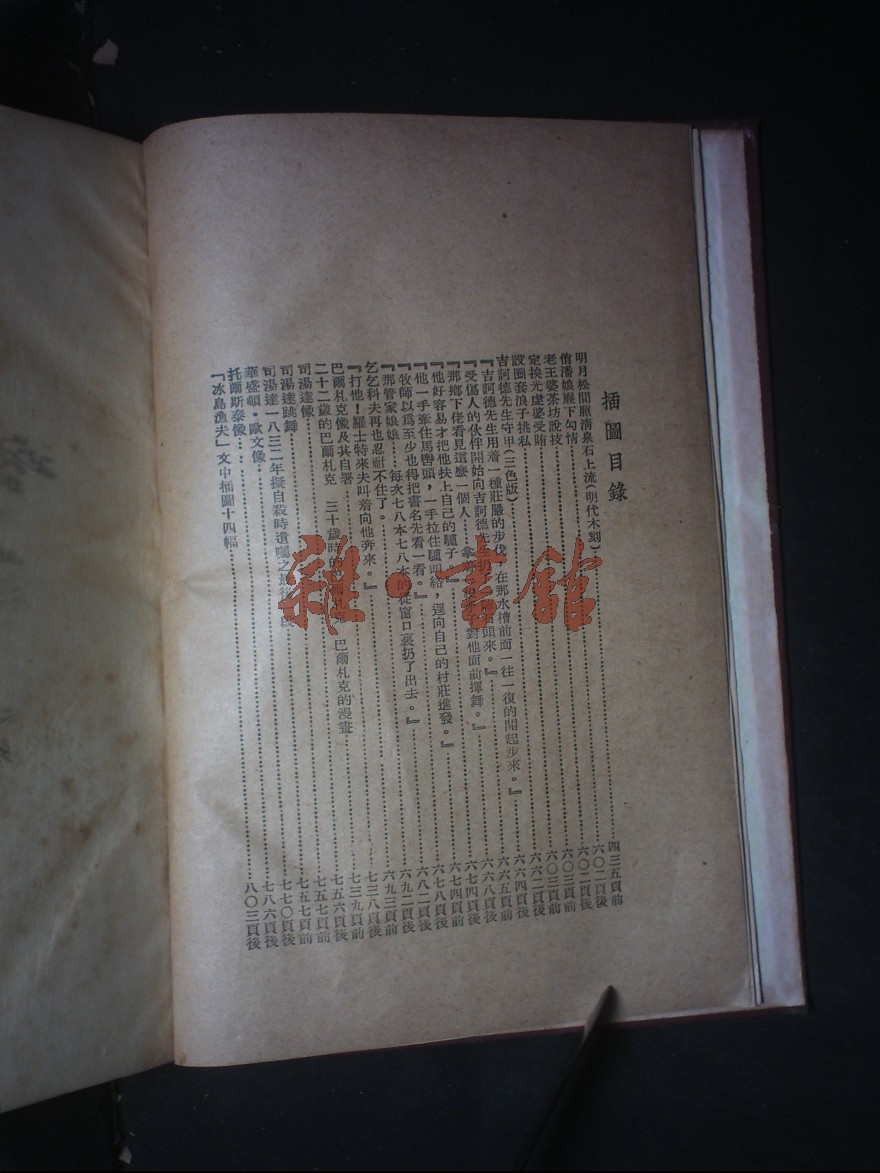 插圖目錄
明月松間照清泉石上流(明代木刻)……四三五頁前
俏潘娘簾下勾情……六〇二頁前
老王婆茶坊說技……六〇二頁後
定挨光虔婆受賄……六〇三頁前
設圈套浪子挑私……六〇三頁後
吉訶德先生守甲(三色版)……六六二頁後
『吉訶德先生用着一種莊嚴的步伐，在那水槽前面一往一復的開起步來。』……六六四頁後
『受傷人的伙伴開始向吉訶德先生扔石頭來。』……六六五頁前
『那鄉下佬看見這麼一個人，對他面前揮舞。』……六六八頁後
『他好容易才把他扶上自己的驢子』……六七四頁後
『他一手牽住馬轡頭，一手拉住驢頭絡，逕向自己的村莊進發。』……六七四頁前
『牧師以爲至少也得把書名先看一看。』……六七八頁後
『那管家娘娘……每次七八本七八本的從窗口裏扔了出去。』……六八二頁後
乞乞科夫再也忍耐不住了。……六九二頁後
『打他！羅士特來夫叫着向他奔來。』……六九三頁前
巴爾札克像及其自署……七三八頁後
二十二歲的巴爾札克　三十歲時的巴爾札克　巴爾札克的漫畫……七三九頁前
司湯達像……七五六頁後
司湯達跳舞……七五七頁前
司湯達一八三二年擬自殺時遺囑之最後一段……七五七頁後
華盛頓・歐文像……七七〇頁後
托爾斯泰像……七八六頁後
『冰島漁夫』文中插圖十四幅……八〇三頁後
雜・書館